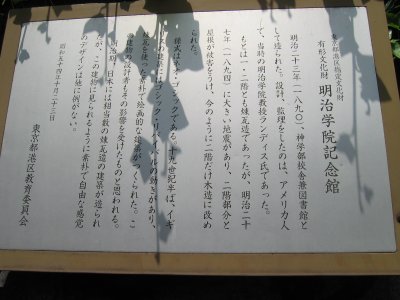 東京都港区指定文化財
有形文化財 明治学院記念館
明治二十三年(一八九〇)、神学部校舎兼図書館と
して造られた。設計、監理をしたのは、アメリカ人
で、当時の明治学院教授ランディス氏であった。
もとは一・二階とも煉瓦造であったが、明治二十
七年(一八九四)に大きい地震があり、二階部分と
屋根が被害をうけ、今のように二階だけ木造に改め
られた。
様式はネオ・ゴシックである。十九世紀半ば、イギ
リスの建築にはゴシック・リバイバルの動きがあり、
煉瓦を使った素朴で絵画的な建築がつくられた。こ
の建物の設計者もその影響を受けたものと思われる。
明治期、日本には相当数の煉瓦造の建築が造られ
たが、この建物に見られるように素朴で自由な感覚
のデザインは他に例がない。
昭和五十四年十月二十三日
東京都港区教育委員会